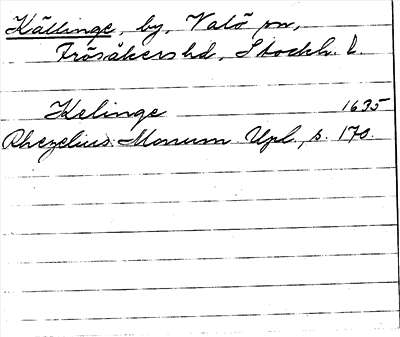 Källinge, by, Valö sn,
Frösåkers hd, Stockh. l.
Kelinge 1635
Rhezelius: Monum Upl., s. 170.